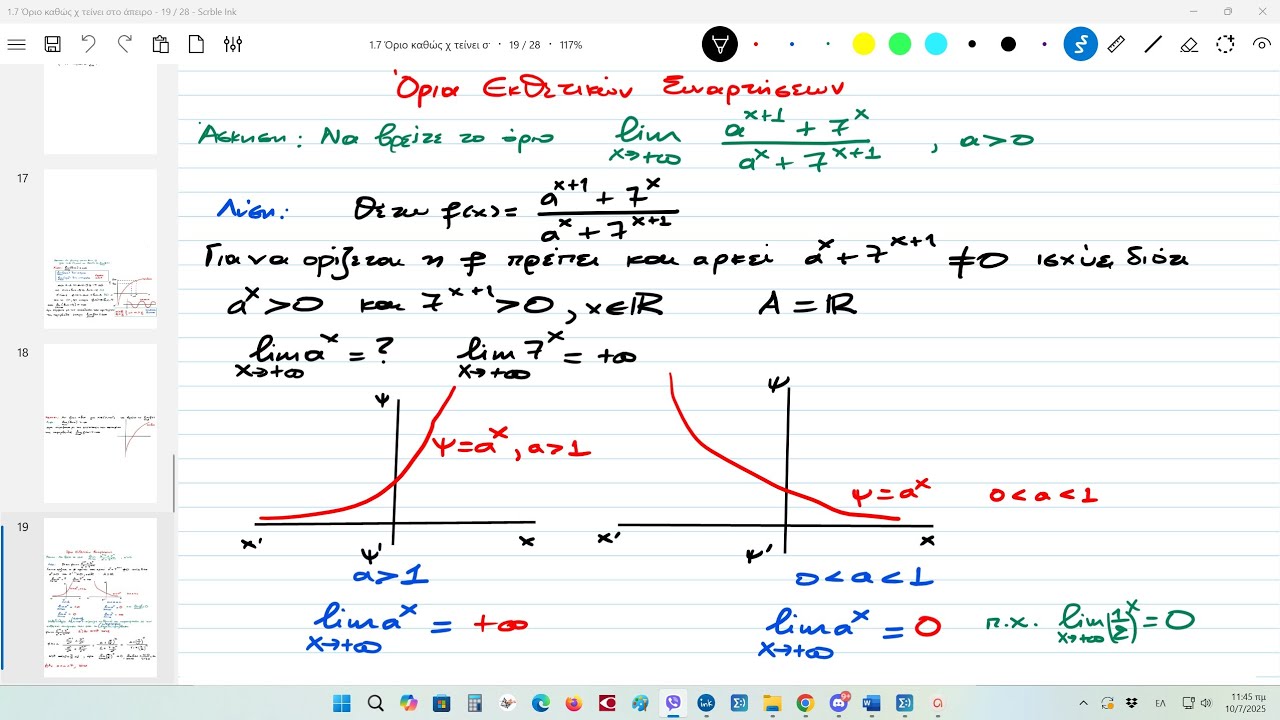 1.7 Όριο καθώς χ τείνει στο άπειρο - 19 / 28 - Scrble Ink
1.7 Όριο καθώς χ τείνει σ · 19 / 28 · 117%
Όρια Εκθετικών Συναρτήσεων
Άσκηση: Να βρείτε το όριο lim x→+∞ (a^(x+1) + 7^x)/(a^x + 7^(x+1)) , a>0
Λύση: Θέτω f(x) = (a^(x+1) + 7^x)/(a^x + 7^(x+1))
Για να ορίζεται η f πρέπει και αρκεί a^x + 7^(x+1) ≠ 0 ισχύει διότι
a^x > 0 και 7^(x+1) > 0, x∈ℝ A = ℝ
lim x→+∞ a^x = ? lim x→+∞ 7^x = +∞
ψ ψ
ψ=a^x, a>1 ψ=a^x 0<a<1
x' ψ' x x' ψ' x
a>1 0<a<1
lim x→+∞ a^x = +∞ lim x→+∞ a^x = 0 π.χ. lim x→+∞ (1/2)^x = 0
17
18
19
ΕΛ 11:45 πμ
10/7/2025